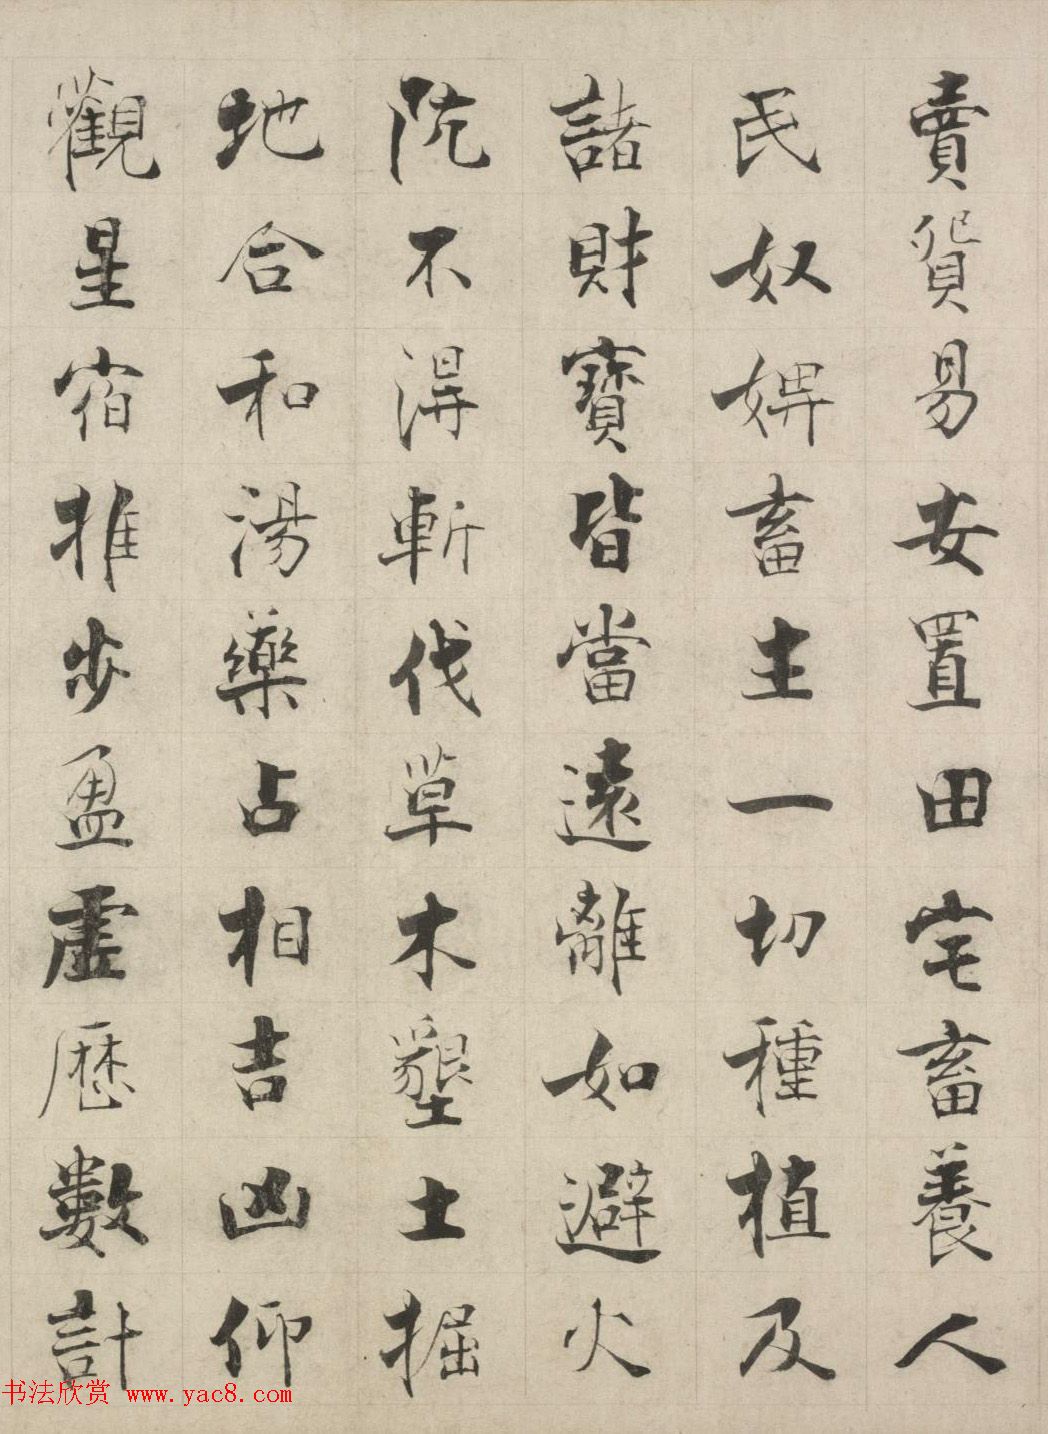 賣貿易安置田宅畜養人
民奴婢畜主一切種植及
諸財寶皆當遠離如避火
阬不得斬伐草木墾土掘
地合和湯藥占相吉凶仰
觀星宿推步盈虛歷數計
书法欣赏 www.yac8.com